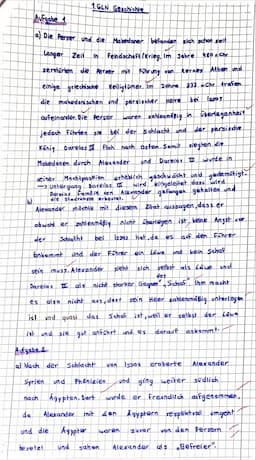 1.GLN Geschichte
Aufgabe 1
a) Die Perser und die Makedonen befanden sich schon seit
langer Zeit in Feindschaft/Krieg. Im Jahre 480 v.Chr
zerstörten die Perser mit Führung von Xerxes Athen und
einige griechische Religionen. Im Jahre 333 v.Chr trafen
die makedonischen und persischen Heere bei Issos
aufeinander. Die Perser waren zahlenmäßig in Überlegenheit
jedoch führten sie bei der Schlacht und der persische
König Dareios III floh nach Osten. Somit siegten die
Makedonen durch Alexander und Dareios III wurde in
seiner Machtposition erheblich geschwächt und gedemütigt.
→ Untergang Dareios III wird eingeleitet dass wird
Dareios Familie von Alexander gefangen gehalten und
die Stadt
b)
Alexander möchte mit diesem Zitat aussagen, dass er
obwohl er zahlenmäßig nicht überlegen ist, keine Angst vor
der Schlacht bei Issos hat, da es auf den Führer
ankommt und der Führer ein Löwe und kein Schaf
sein muss. Alexander sieht sich selbst als Löwe und
Dareios III als nicht starker Gegner "Schaf". Ihm macht
es also nicht aus, dass sein Heer zahlenmäßig unterlegen
ist und quasi das Schaf ist, weil er selbst der Löwe
ist und sie gut anführt und es darauf ankommt.
Aufgabe 2
a) Nach der Schlacht von Issos eroberte Alexander
Syrien und Phönizien und ging weiter südlich
nach Ägypten. Dort wurde er freundlich aufgenommen,
da Alexander mit den Ägyptern respektvoll umgeht
und die Ägypter waren zuvor von den Persern
besetzt und sahen Alexander als "Befreier".